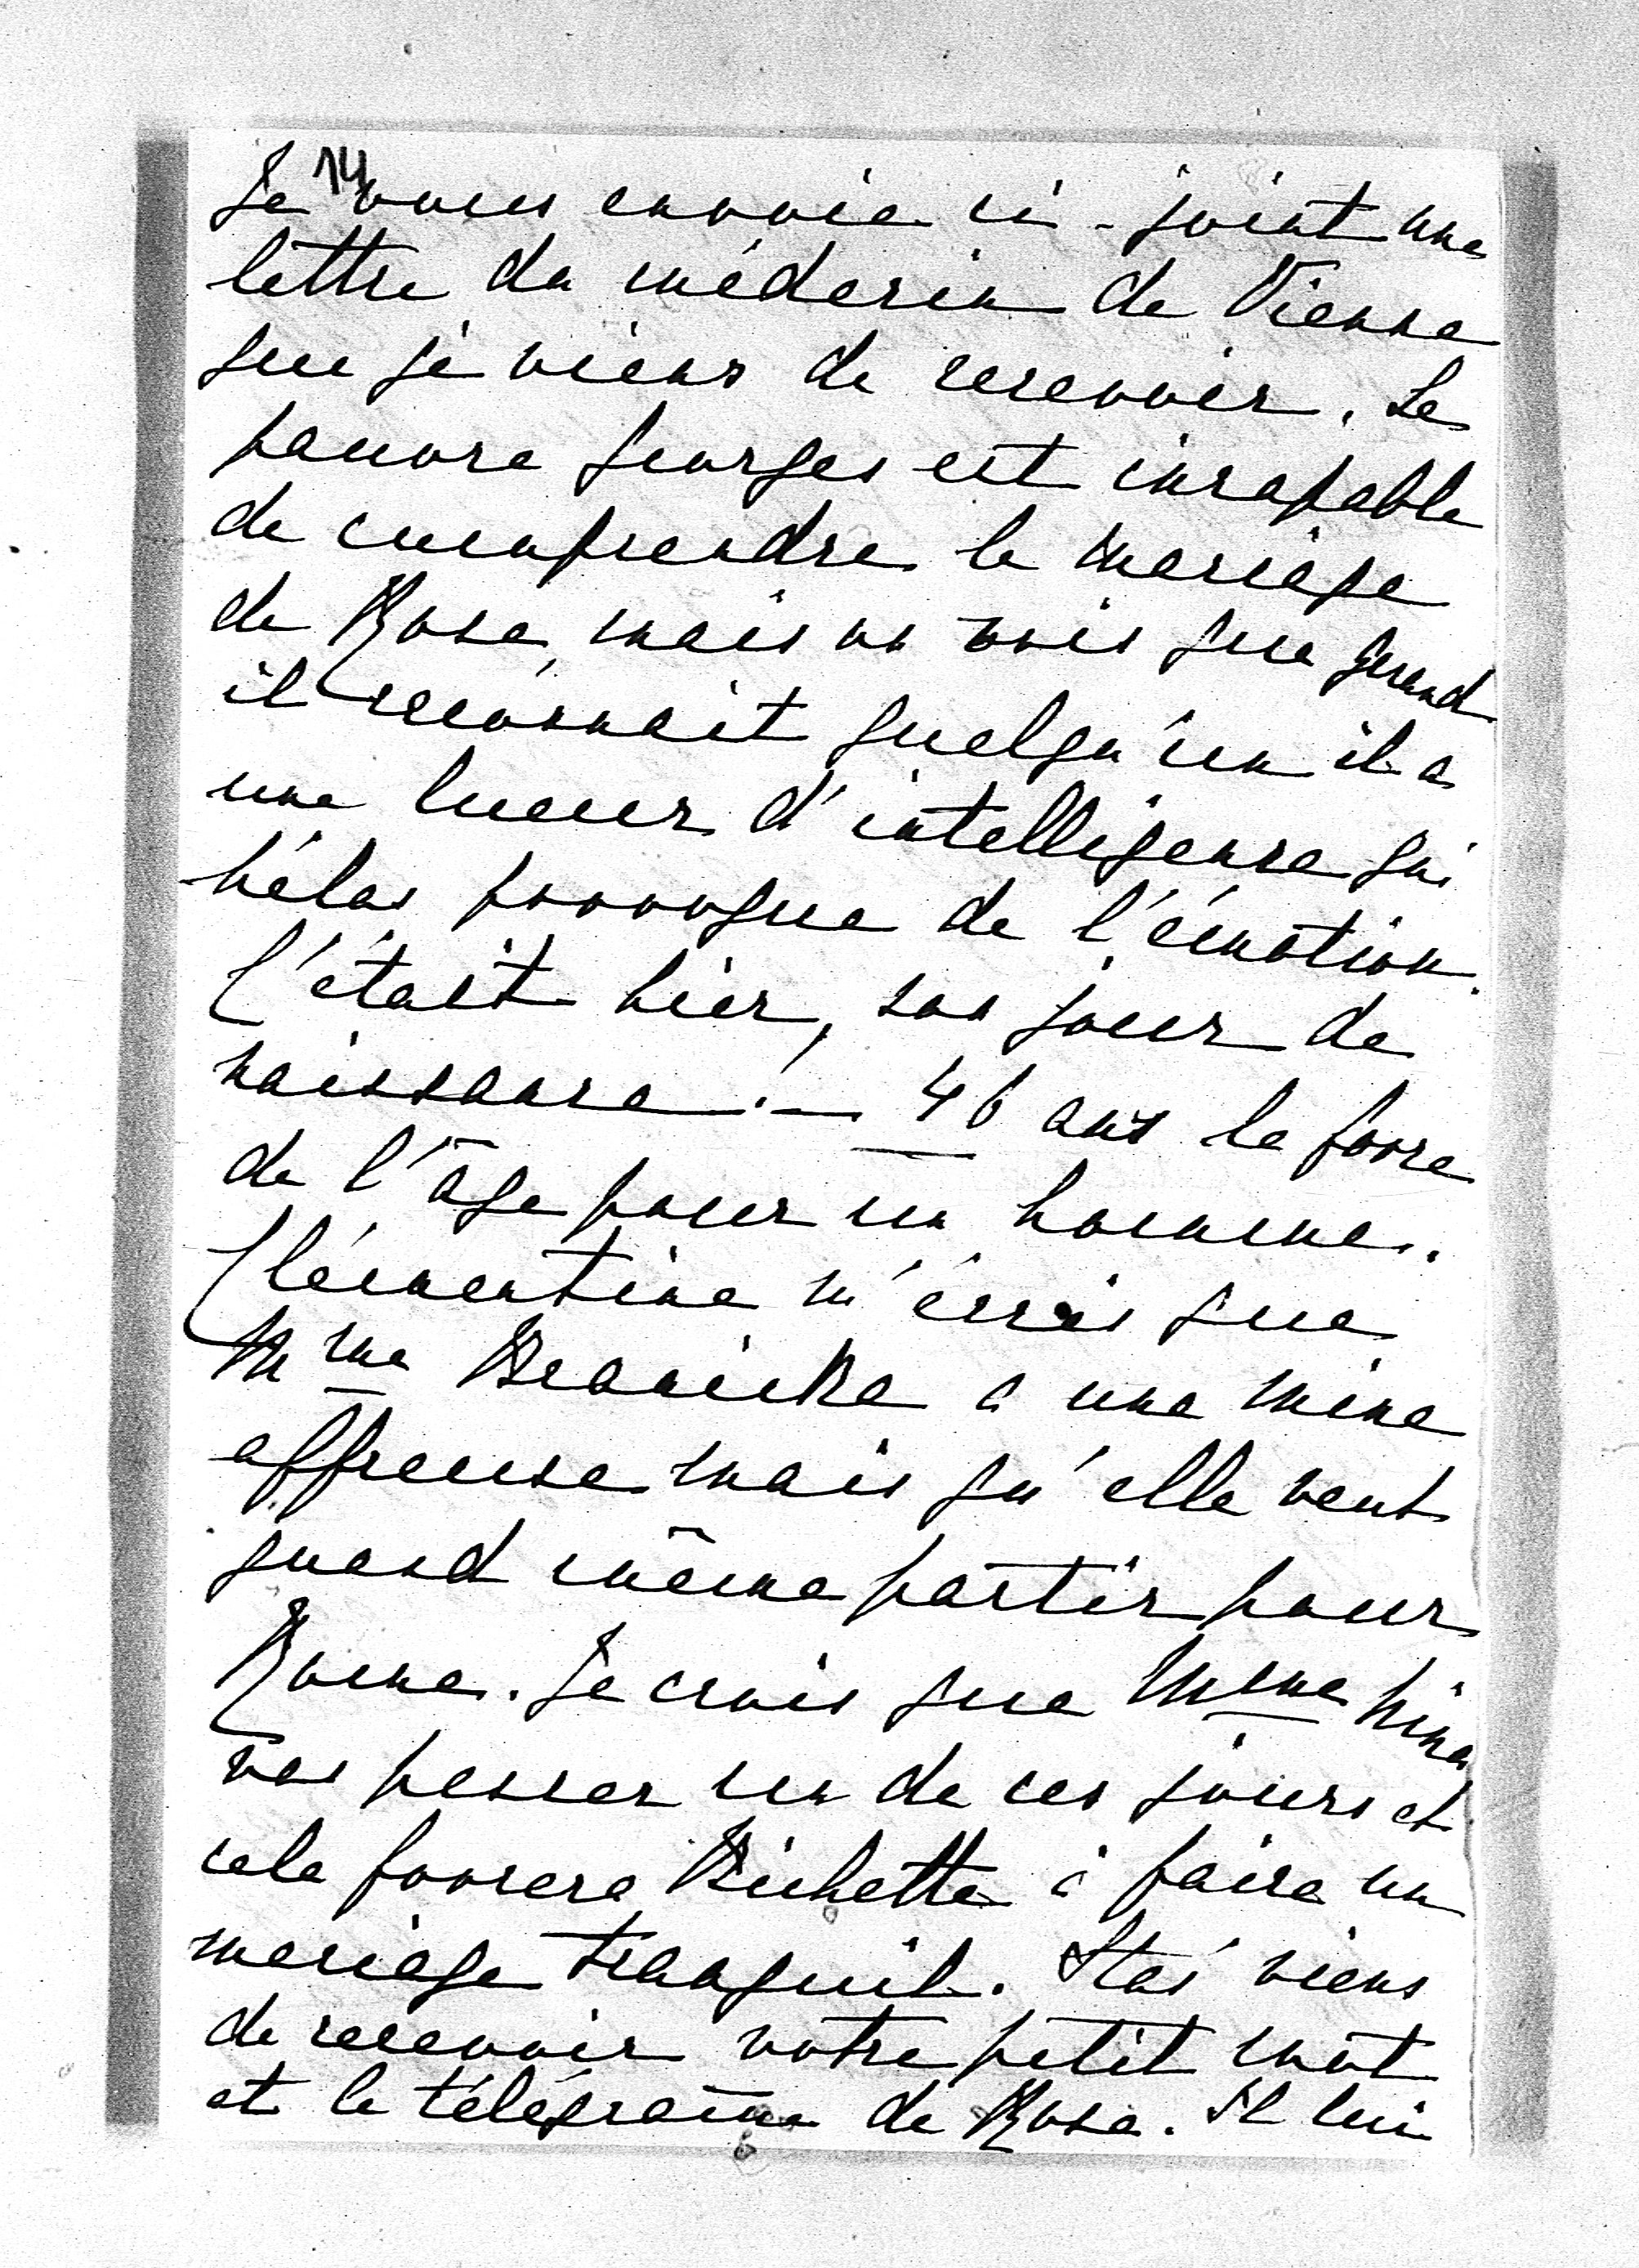 14
Je vous envoie ci-joint une
lettre du médecin de Vienne
que je viens de recevoir. Le
pauvre Georges est incapable
de comprendre le mariage
de Rose, mais on vois que quand
il reconnait quelqu'un il a
une lueur d'intelligence qui
hélas provoque de l'émotion.
C'était hier, son jour de
naissance! — 46 ans la force
de l'âge pour un homme.
Clémentine m'écris que
Mme Branicka a une mine
affreuse mais qu'elle veut
quand même partir pour
Rome. Je crois que Mme
vas passer un de ces jours et
cela forcera Bichette à faire un
mariage tranquil. Stas' viens
de recevoir votre petit mot
et le télégrame de Rose. Il lui